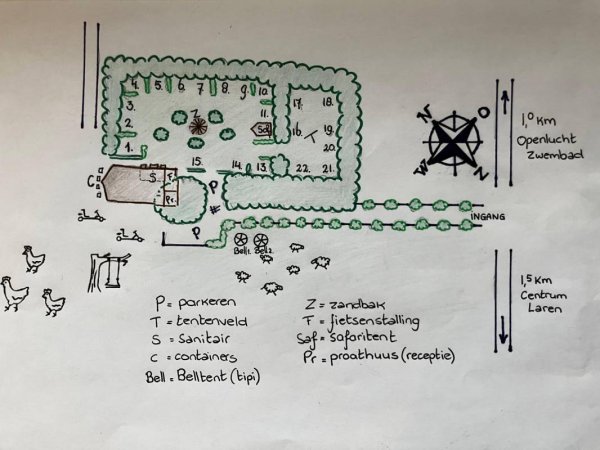 4. 5. 6. 7. 8. 9. 10.
3.
2.
1.
11.
Z
Saf
17. 18.
16. T 19.
20.
15. 14. 13. 22. 21.
C
S F
Pr.
P
P
Bell1. Bell2.
INGANG
N O
W Z
1,0 Km
Openlucht
Zwembad
1,5 Km
Centrum
Laren
P = parkeren
T = tentenveld
S = sanitair
C = containers
Bell = Belltent (tipi)
Z = zandbak
F = fietsenstalling
Saf = safaritent
Pr = proathuus (receptie)